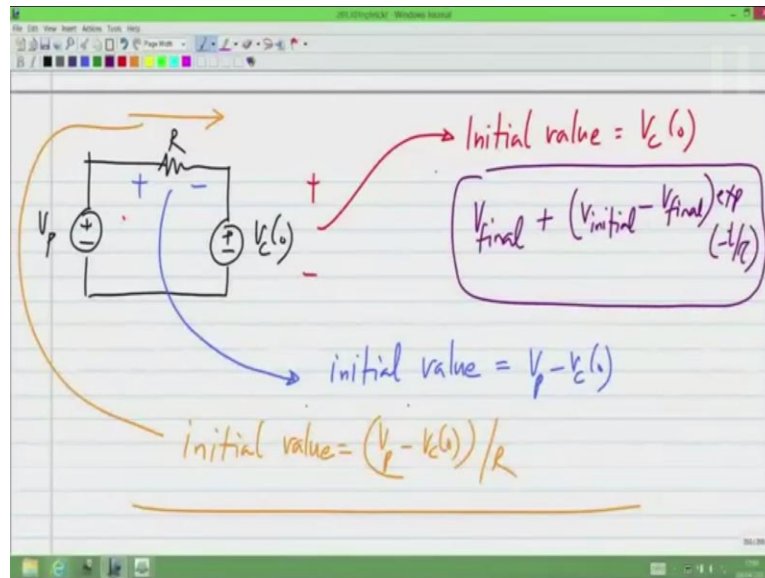 File Edit View Insert Actions Tools Help
Page Width
R
+ -
V_p
+
-
+
-
V_c(0)
+
-
Initial value = V_c(0)
V_final + (V_initial - V_final) exp
(-t/τ)
initial value = V_p - V_c(0)
initial value = (V_p - V_c(0))/R